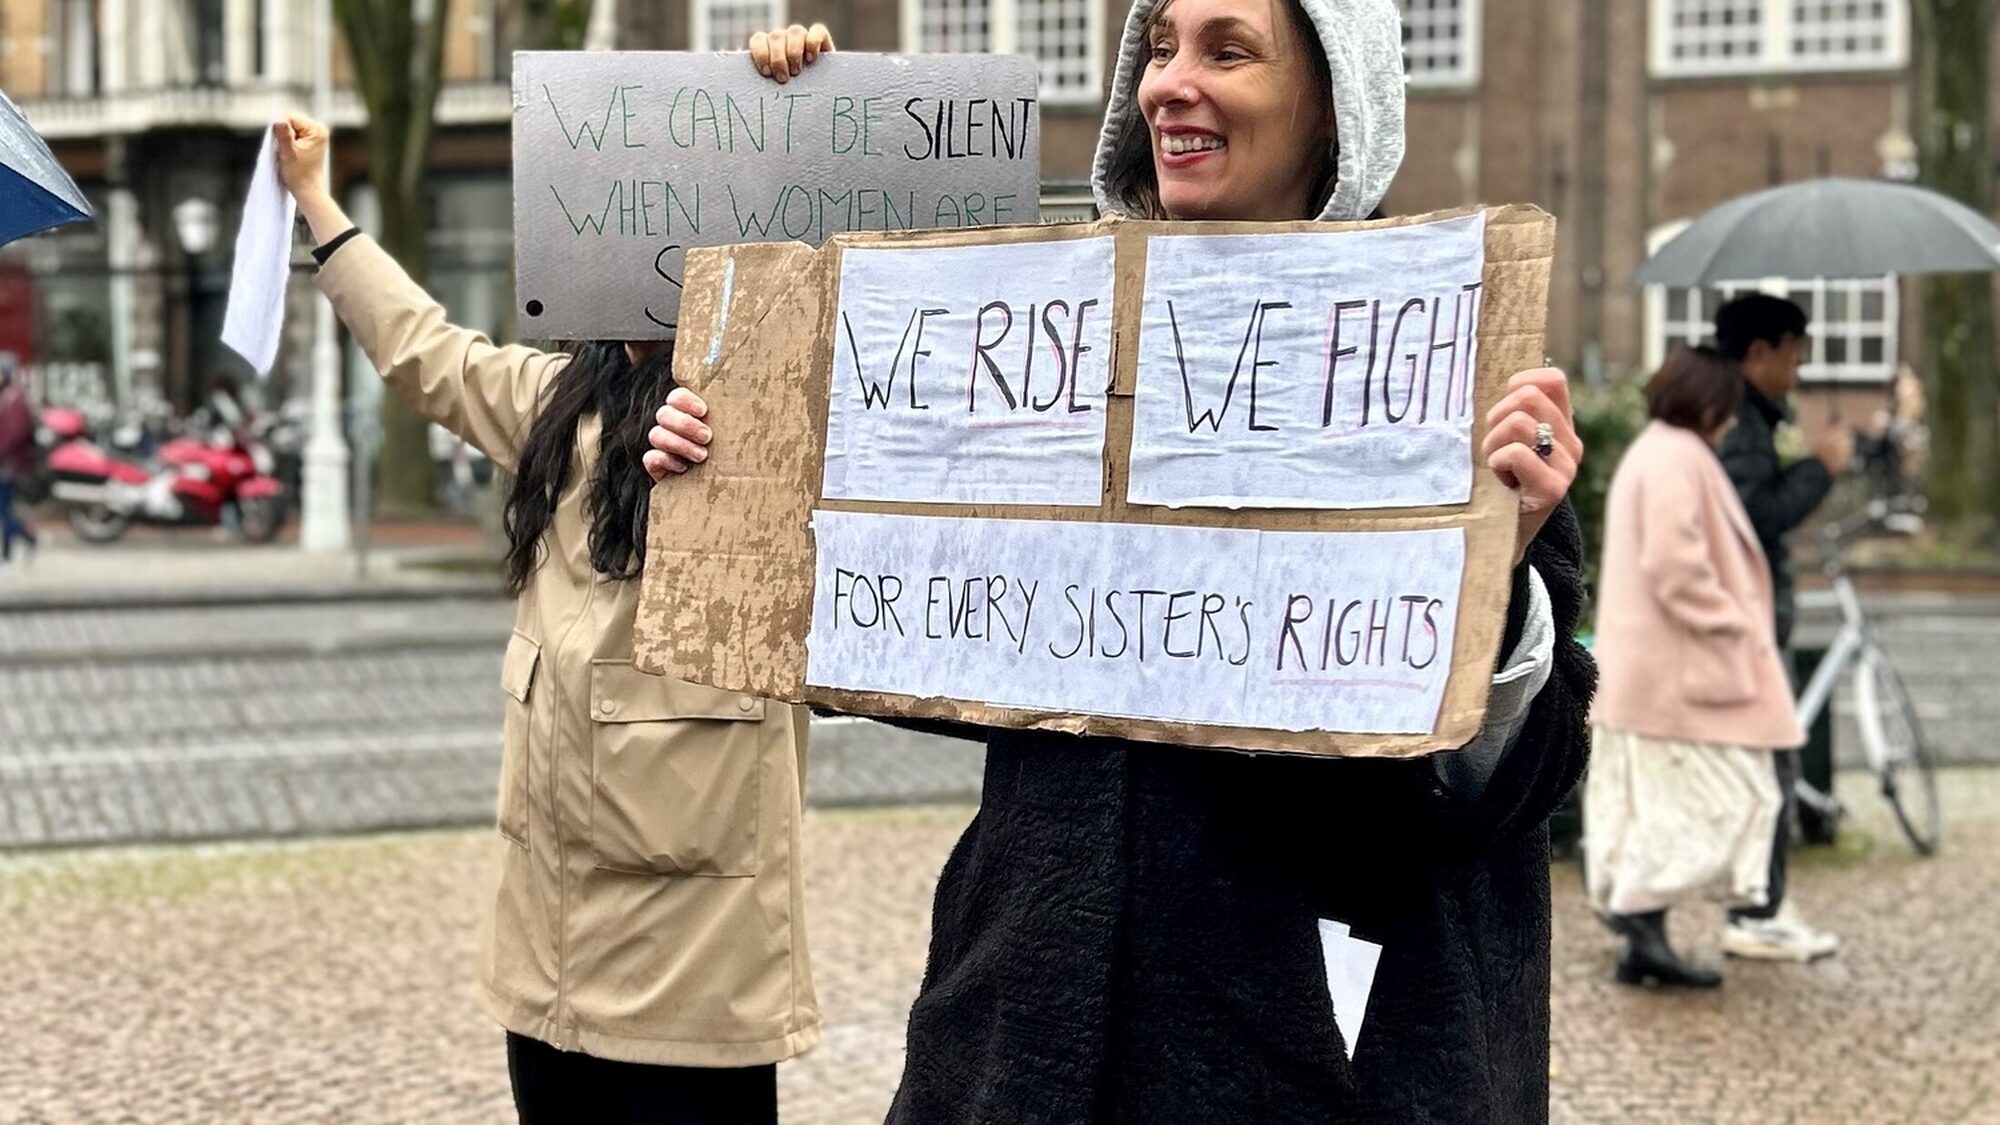 WE CAN'T BE SILENT
WHEN WOMEN ARE
WE RISE
WE FIGHT
FOR EVERY SISTER'S RIGHTS